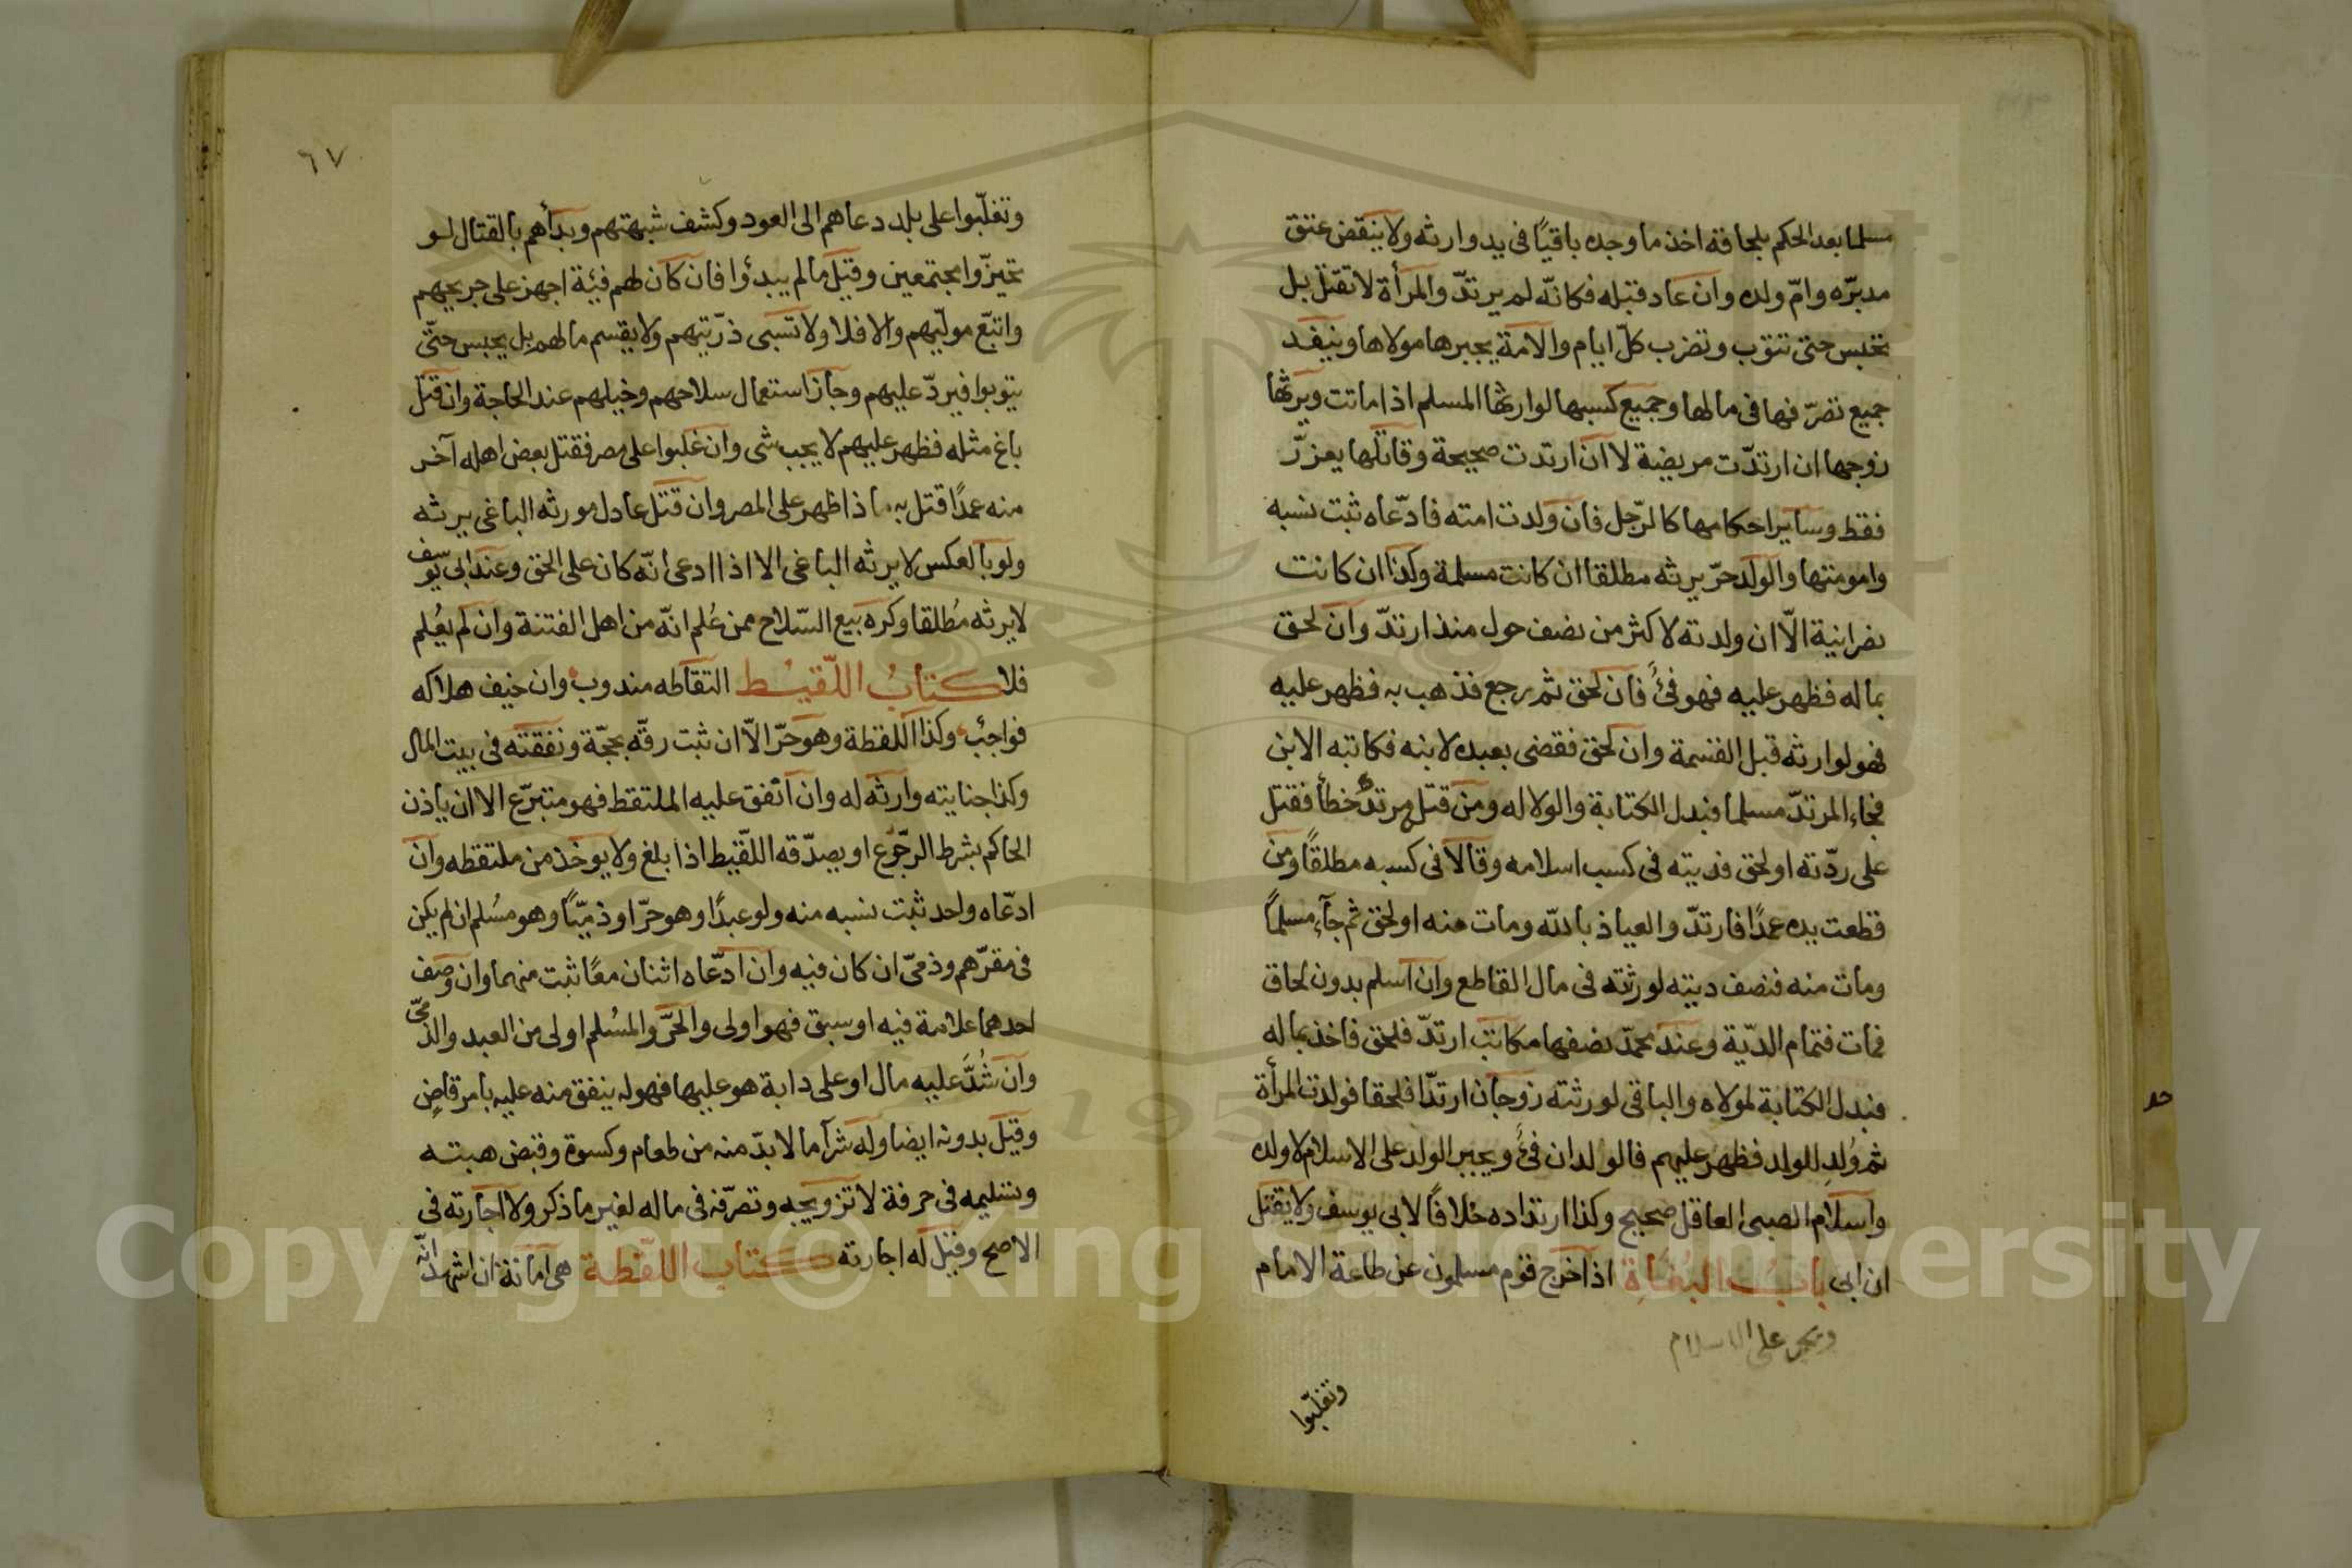 مسلما بعد الحكم بلحاقه اخذ ما وجده باقيًا فى يد وارثه ولا ينقض عتق
مدبّره وامّ ولده وان عاد قبله فكانّه لم يرتدّ والمرأة لا تقتل بل
تحبس حتى تتوب وتضرب كلّ ايام والامة يجبرها مولاها وينفد
جميع تصرّفها فى مالها وجميع كسبها لوارثها المسلم اذا ماتت ويرثها
زوجها ان ارتدّت مريضة لا ان ارتدت صحيحة وقاتلها يعزّر
فقط وساير احكامها كالرّجل فان ولدت امته فادّعاه ثبت نسبه
وامومتها والولد حرّ يرثه مطلقا ان كانت مسلمة وكذا ان كانت
نصرانية الّا ان ولدته لاكثر من نصف حول منذ ارتدّ وان لحق
بماله فظهر عليه فهو فئ فان لحق ثم رجع فذهب به فظهر عليه
فهو لوارثه قبل القسمة وان لحق فقضى بعبده لابنه فكاتبه الابن
فجاء المرتدّ مسلما فبدل الكتابة والولا له ومن قتل مرتدٌ خطأ فقتل
على ردّته او لحق فديته فى كسب اسلامه وقالا فى كسبه مطلقًا ومن
قطعت يده عمدًا فارتدّ والعياذ بالله ومات منه او لحق ثم جآء مسلمًا
ومات منه فنصف ديته لورثته فى مال القاطع وان اسلم بدون لحاق
فمات فتمام الدّية وعند محمّد نصفها مكاتب ارتدّ فلحق فاخذ بماله
فبدل الكتابة لمولاه والباقى لورثته زوجان ارتدّا فلحقا فولدت المرأة
ثم وُلد للولد فظهر عليهم فالولدان فئ ويجبر الولد على الاسلام لا ولده
واسلام الصبى العاقل صحيح وكذا ارتداده خلافًا لابى يوسف ولا يقتل
ان ابى بابُ البُغَاةِ اذا خرج قوم مسلمون عن طاعة الامام
ويجبر على الاسلام
وتغلّبوا
٦٧
وتغلّبوا على بلد دعاهم الى العود وكشف شبهتهم وبدأهم بالقتال لو
تحيّزوا مجتمعين وقيل ما لم يبدؤا فان كان لهم فيئة اجهز على جريحهم
واتبع مولّيهم والا فلا ولا تسبى ذرّيتهم ولا يقسم مالهم بل يحبس حتّى
يتوبوا فيردّ عليهم وجاز استعمال سلاحهم وخيلهم عند الحاجة وان قتل
باغ مثله فظهر عليهم لا يجب شى وان غلبوا على مصر فقتل بعض اهله آخر
منه عمدًا قتل به اذا ظهر على المصر وان قتل عادل مورثه الباغى يرثه
ولو بالعكس لا يرثه الباغى الا اذا ادعى انّه كان على الحق وعند ابى يوسف
لا يرثه مُطلقا وكره بيع السّلاح ممن عُلم انّه من اهل الفتنة وان لم يعُلم
فلا كتابُ اللّقيُط التقاطه مندوب وان خيف هلاكه
فواجبٌ وكذا اللقطة وهو حرّ الّا ان ثبت رقّه بحجّة ونفقته فى بيت المال
وكذا جنايته وارثه له وان انفق عليه الملتقط فهو متبرّع الا ان ياذن
الحاكم بشرط الرجّوع او يصدّقه اللقّيط اذا بلغ ولا يوخذ من ملتقطه وان
ادّعاه واحد ثبت نسبه منه ولو عبدًا وهو حرّ او ذميّاً وهو مسُلم ان لم يكن
فى مقرّهم وذمىّ ان كان فيه وان ادّعاه اثنان معًا ثبت منهما وان وصف
احدهما علامة فيه او سبق فهو اولى والحرّ والمسُلم اولى من العبد والذمّى
وان شُدَّ عليه مال او على دابة هو عليها فهو له ينفق منه عليه بامر قاضٍ
وقيل بدونه ايضا وله شرآ ما لا بدّ منه من طعام وكسوة وقبض هبته
وتسليمه فى حرفة لا تزويجه وتصرّفه فى ماله لغير ما ذكر ولا اجارته فى
الاصح وقيل له اجارته كتاب اللقّطة هى امانة ان اشهد انّه
Copyright © King Saud University